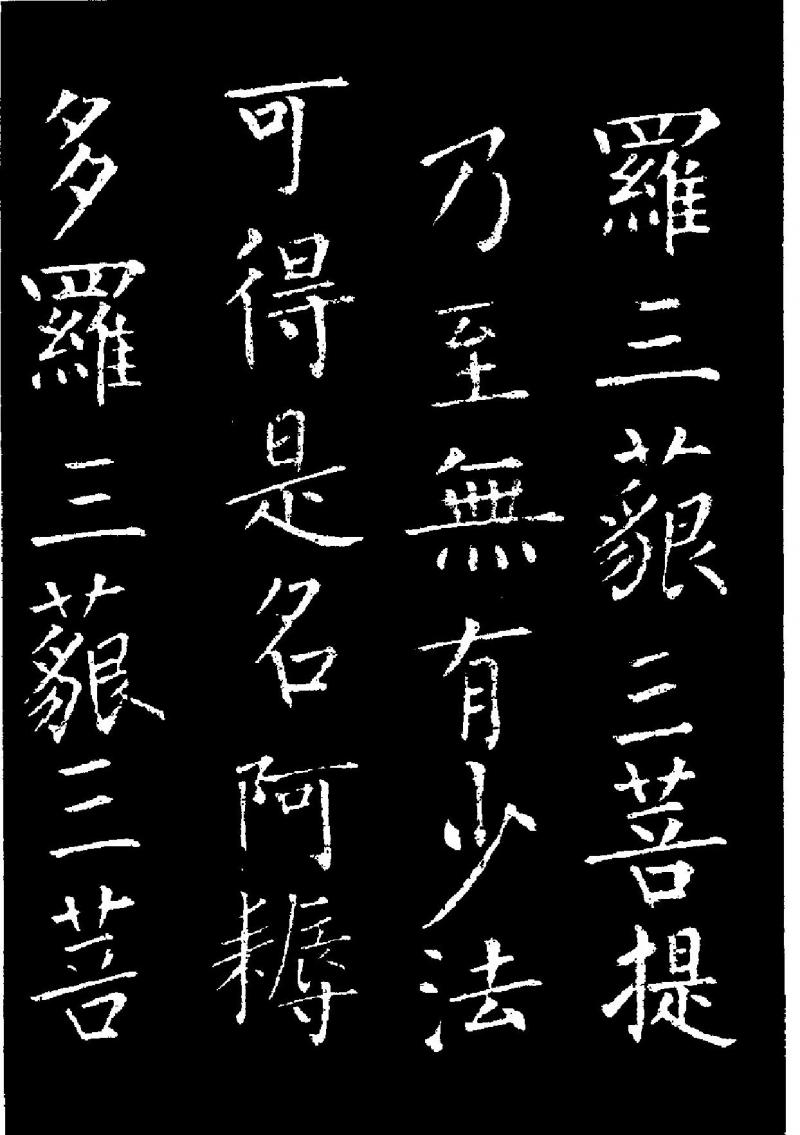 羅三藐三菩提
乃至無有少法
可得是名阿耨
多羅三藐三菩